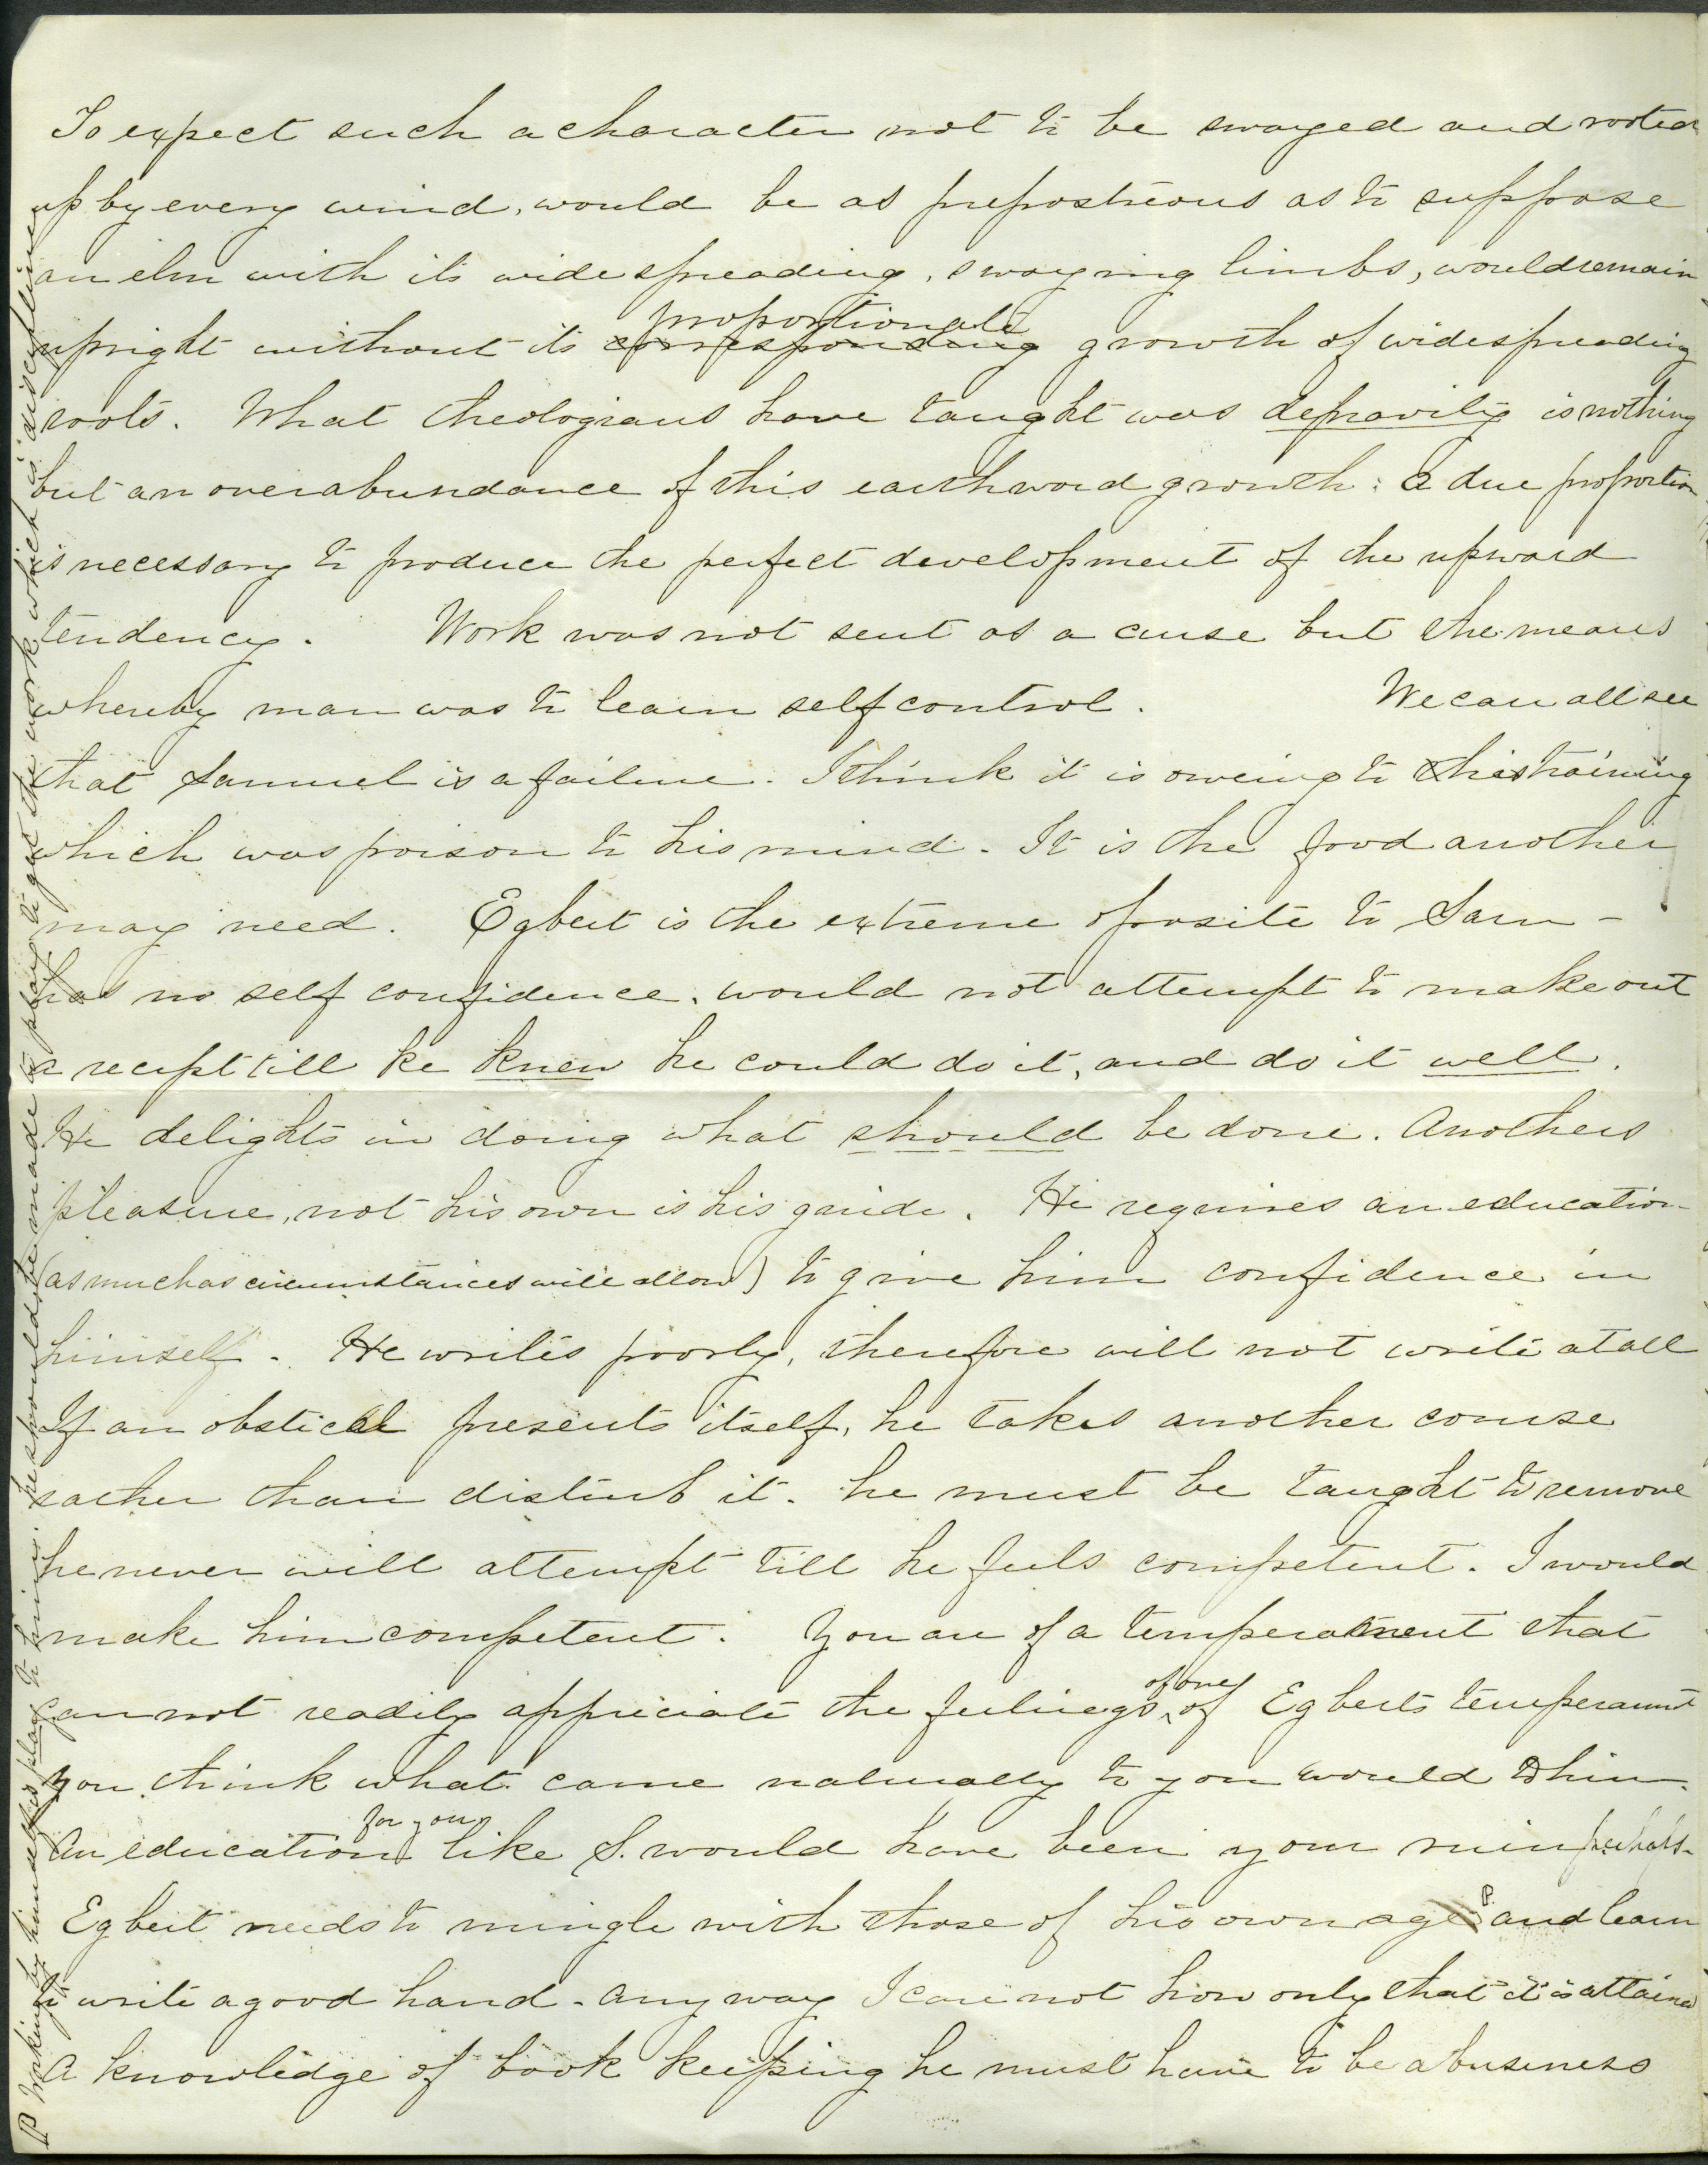 To expect such a character not to be swayed and rooted
up by every wind, would be as preposterous as to suppose
an elm with its wide spreading, swaying limbs, would remain
proportionate
upright without its corresponding growth of widespreading
roots. What theologians have taught was depravity is nothing
but an overabundance of this earthward growth: a due proportion
is necessary to produce the perfect development of the upward
tendency. Work was not sent as a curse but the means
whereby man was to learn self control. We can all see
that Samuel is a failure. I think it is oweing to his training
which was poison to his mind. It is the food another
may need. Egbert is the extreme oposite to Sam -
has no self confidence, would not attempt to make out
a recipt till he knew he could do it, and do it well.
He delights in doing what should be done. Anothers
pleasure, not his own is his guide. He requires an education
(as much as circumstances will allow) to give him confidence in
himself. He writes poorly, therefore will not write at all
If an obstical presents itself, he takes another course
rather than disturb it. he must be taught to remove
he never will attempt till he feels competent. I would
make him competent. You are of a temperament that
of one
can not readily appriciate the feelings of Egberts temperament
you think what came naturally to you would to him.
for you
An education like S. would have been your ruin perhaps-
Egbert needs to mingle with those of his own age P. and learn
to write a good hand - any way I care not how only that it is attained
A knowledge of book keeping he must have to be a business
P Working by himself is play to him. he should be made to play to get the work which is discipline